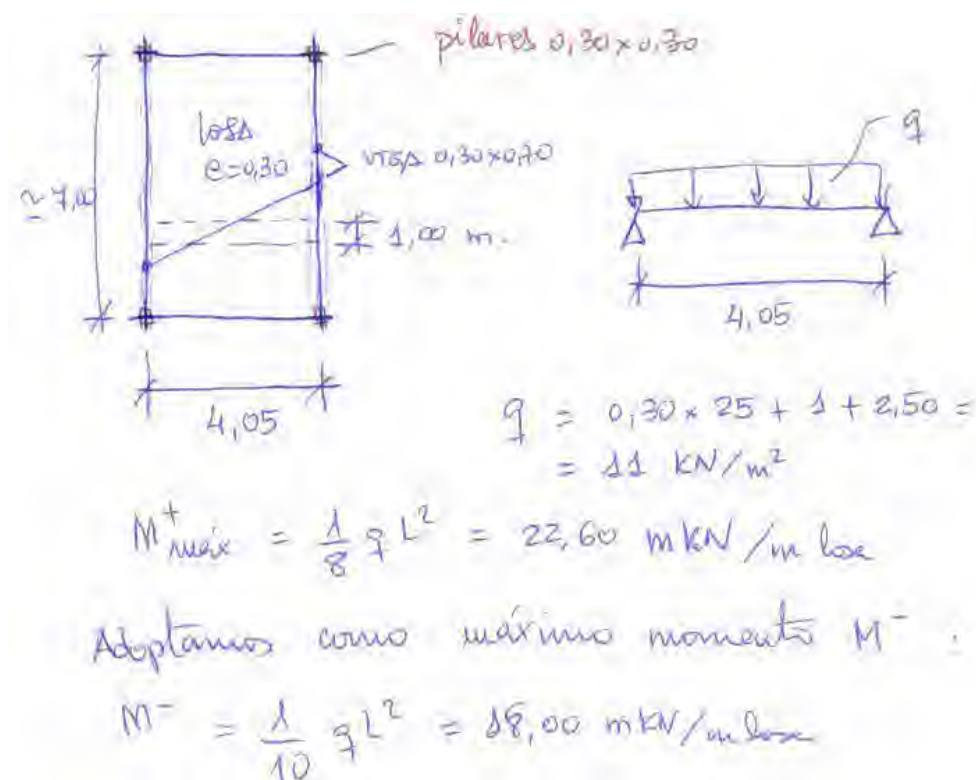 pilares 0,30x0,30
losa
e=0,30
VIGA 0,30x0,70
q
≃ 7,00
1,00 m.
4,05
4,05
q = 0,30 x 25 + 1 + 2,50 =
= 11 KN/m²
M⁺máx = 1/8 q L² = 22,60 mKN/m losa
Adoptamos como máximo momento M⁻ :
M⁻ = 1/10 q L² = 18,00 mKN/m losa